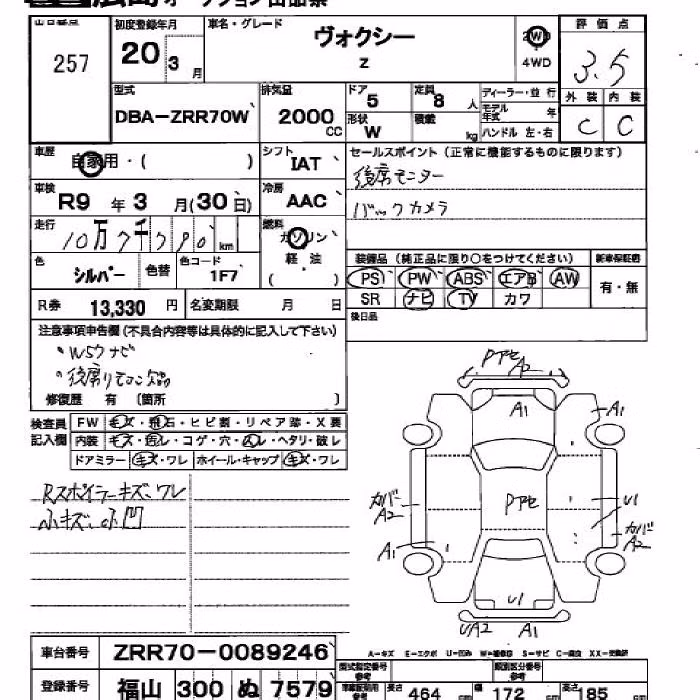 オークション出品票
出品番号 257
初度登録年月 20 3 月
車名・グレード ヴォクシー Z
2WD 4WD
評価点 3.5
外装 内装 C C
型式 DBA-ZRR70W
排気量 2000 CC
ドア 5
定員 8 人
形状 W
積載 kg
ディーラー・並行
モデル年式 年
ハンドル 左・右
車歴 自家用・( )
シフト IAT
セールスポイント(正常に機能するものに限ります)
後席モニター
バックカメラ
車検 R9 年 3 月(30日)
冷房 AAC
走行 10万7千790 km
燃料 ガソリン 軽油 ( )
色 シルバー 色替
色コード 1F7
装備品(純正品に限り○をつけてください) 新車保証書
PS PW ABS エアB AW 有・無
SR ナビ TV カワ
R券 13,330 円 名変期限 月 日
後日品
注意事項申告欄(不具合内容等は具体的に記入して下さい)
・後席リモコン欠品
修復歴 有 〔箇所 〕
検査員記入欄
FW キズ・飛石・ヒビ割・リペア跡・X要
内装 キズ・汚レ・コゲ・穴・スレ・ヘタリ・破レ
ドアミラー キズ・ワレ ホイール・キャップ キズ・ワレ
Rスポイラーキズ、ワレ
小キズ、小凹
Pアセ A2
A1 A1
カバー A2
Pアセ
U1
カバー A2
A1
U1
UA2 A1
A=キズ E=エクボ U=凹み W=補修跡 S=サビ C=腐食 XX=交換済
車台番号 ZRR70-0089246
登録番号 福山 300 ぬ 7579
型式指定番号 参考 類別区分番号 参考
長さ 464 cm 幅 172 cm 高さ 185 cm